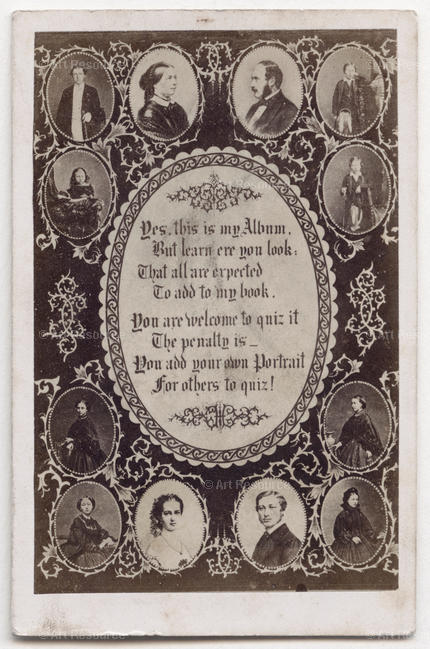 Yes, this is my Album,
But learn ere you look;
That all are expected
To add to my book.
You are welcome to quiz it
The penalty is —
You add your own Portrait
For others to quiz!
© Art Resource
© Art Resource
© Art Resource
© Art Resource
© Art Resource
© Art Resource
© Art Resource
© Art Resource